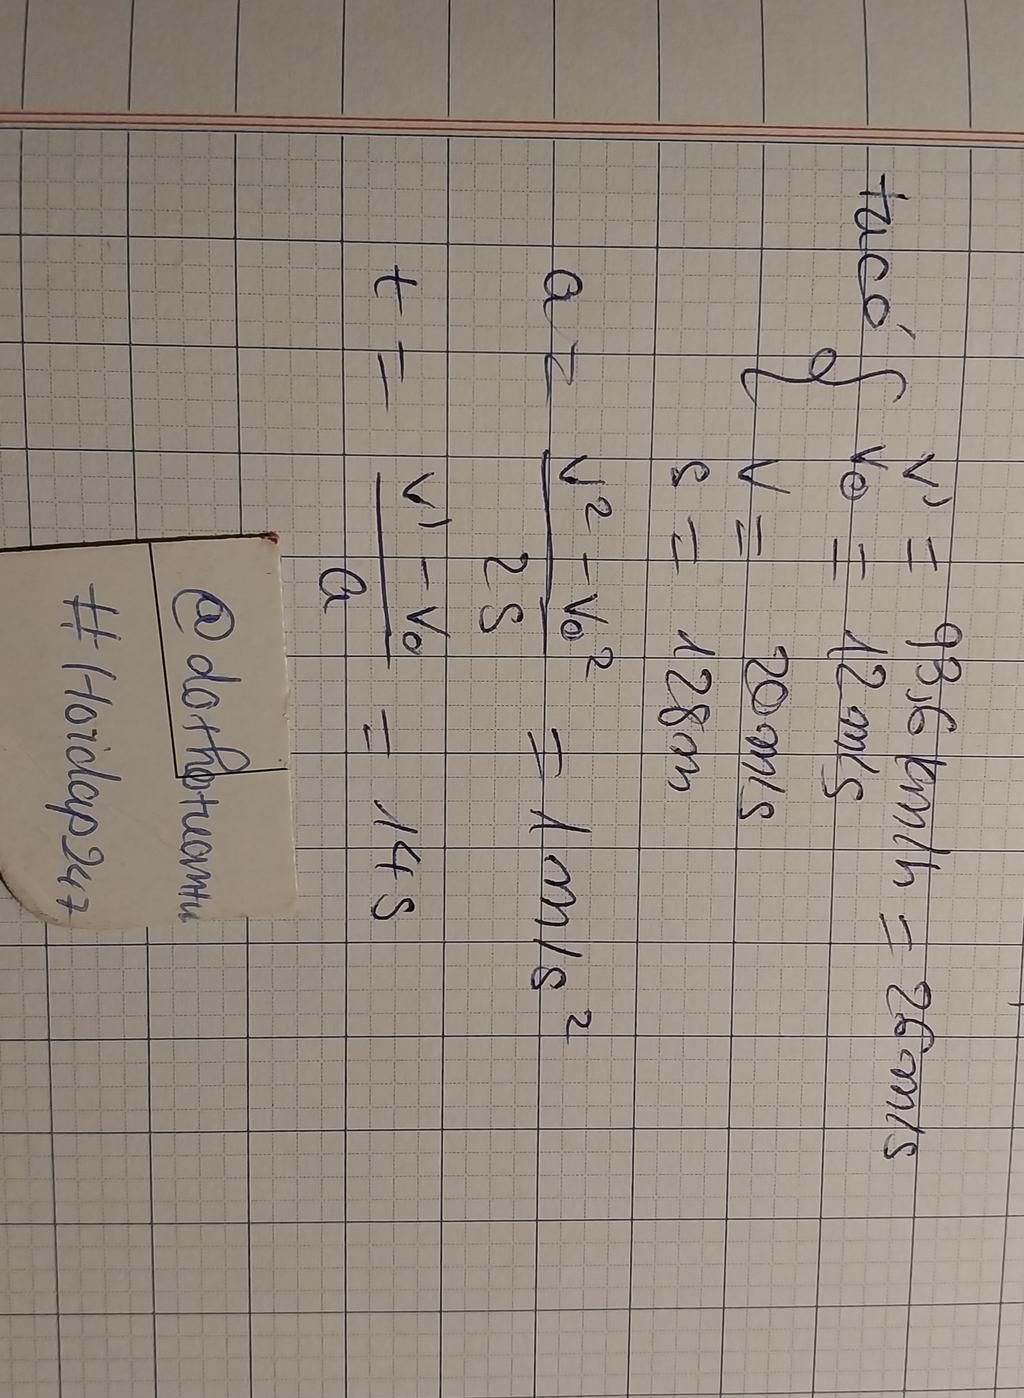 t/có { v' = 93,6 km/h = 26 m/s
v₀ = 12 m/s
v = 20 m/s
s = 128m
a = (v² - v₀²) / 2s = 1 m/s²
t = (v' - v₀) / a = 14s
#Hoidap247